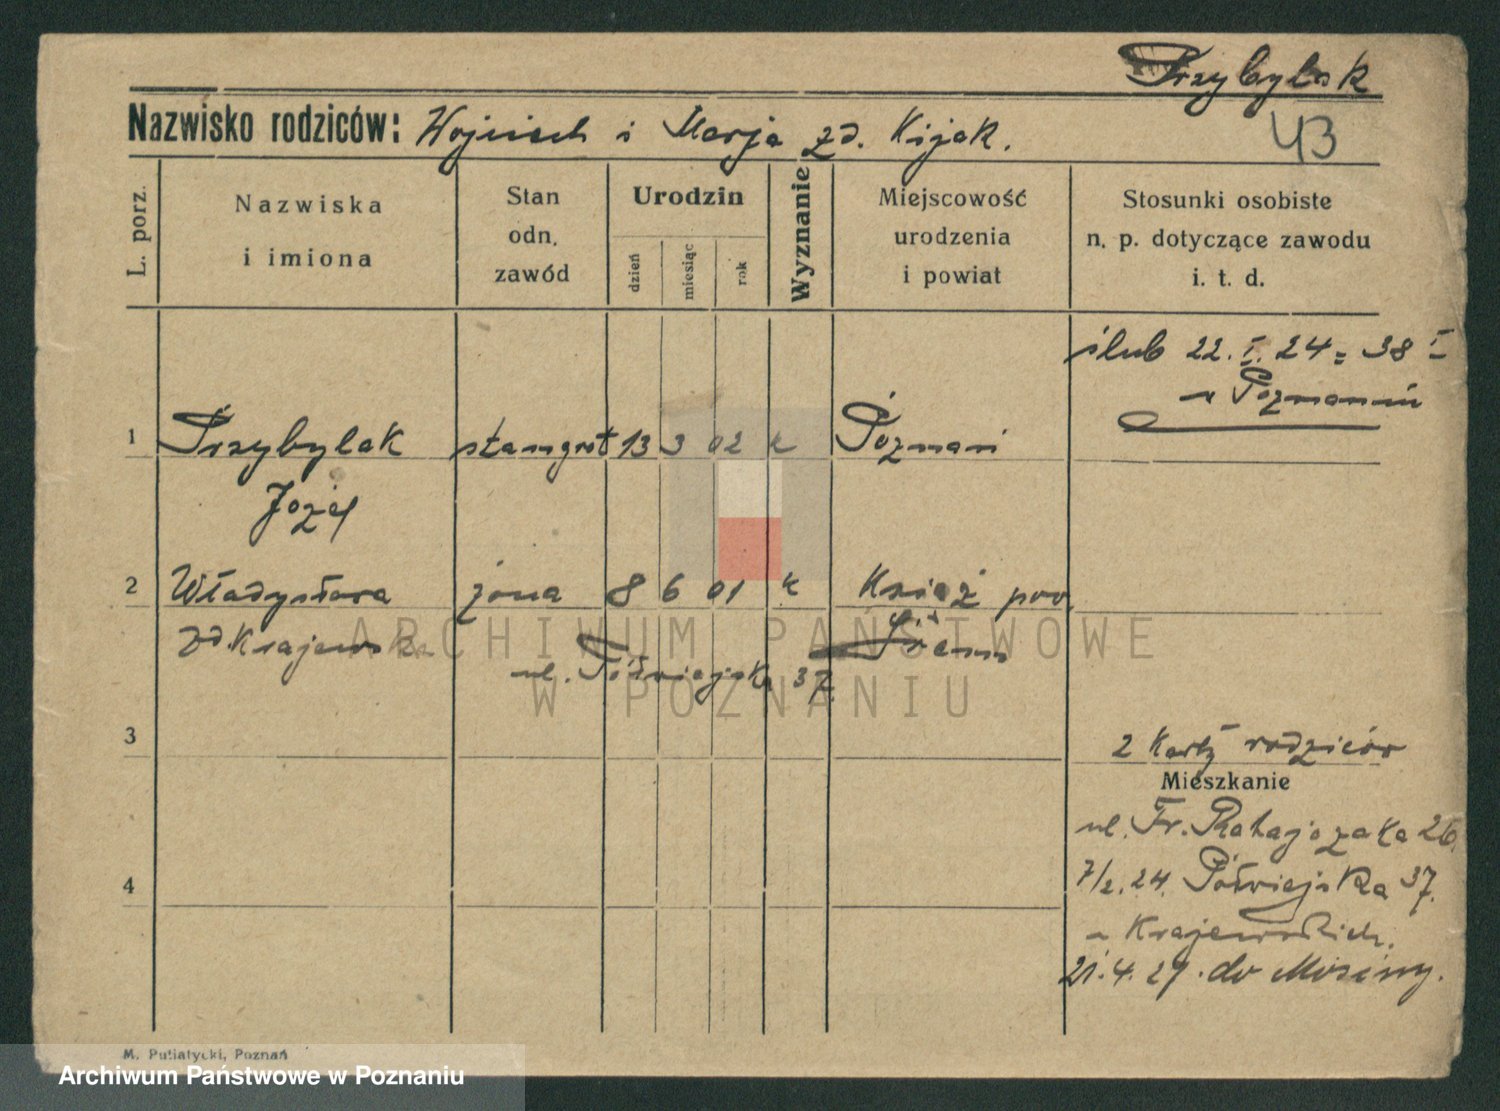 Przybylak
Nazwisko rodziców: Wojciech i Marja zd. Kijak.
43
L. porz.
Nazwiska
i imiona
Stan
odn.
zawód
Urodzin
dzień
miesiąc
rok
Wyznanie
Miejscowość
urodzenia
i powiat
Stosunki osobiste
n. p. dotyczące zawodu
i. t. d.
ślub 22. I. 24 = 38 I
w Poznaniu
1 Przybylak stangret 13 3 02 k Poznań
Józef
2 Władysława żona 8 6 01 k Książ pow.
zd. Krajewska Śrem
ul. Półwiejska 37
3
2 Karty rodziców
Mieszkanie
ul. Fr. Ratajczaka 26.
7/2. 24. Półwiejska 37.
4
u Krajewskich.
21. 4. 27. do Mosiny.
M. Putiatycki, Poznań
ARCHIWUM PAŃSTWOWE
W POZNANIU
Archiwum Państwowe w Poznaniu